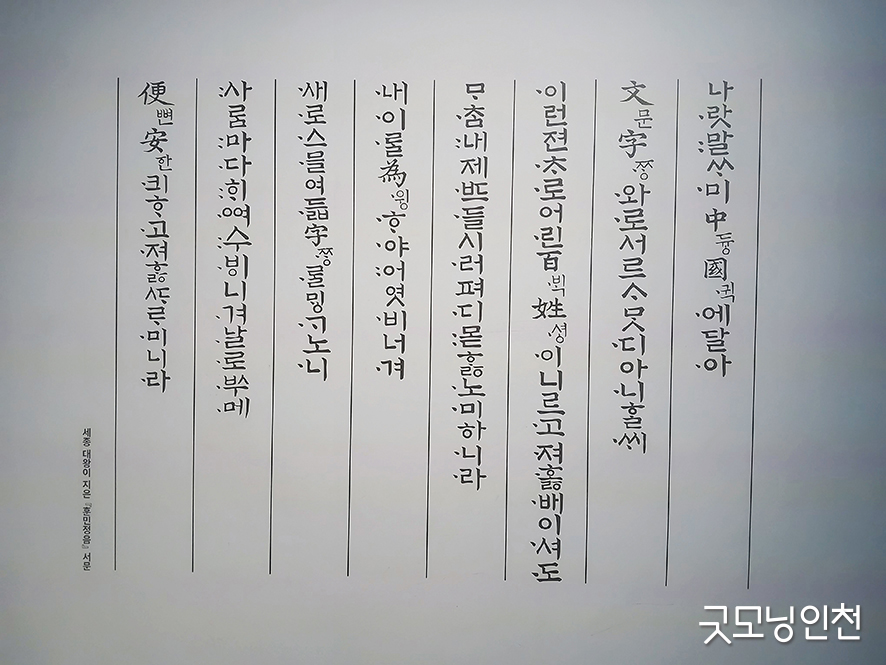 나랏말ᄊᆞ미中듕國귁에달아
文문字ᄍᆞᆼ와로서르ᄉᆞᄆᆞᆺ디아니ᄒᆞᆯᄊᆡ
이런젼ᄎᆞ로어린百ᄇᆡᆨ姓셩이니르고져홇배이셔도
ᄆᆞᄎᆞᆷ내제ᄠᅳ들시러펴디몯ᄒᆞᇙ노미하니라
내이ᄅᆞᆯ為윙ᄒᆞ야어엿비너겨
새로스믈여듧字ᄍᆞᆼᄅᆞᆯᄆᆡᇰᄀᆞ노니
사ᄅᆞᆷ마다ᄒᆡᅇᅧ수ᄫᅵ니겨날로ᄡᅮ메
便뼌安한킈ᄒᆞ고져ᄒᆞᇙᄯᆞᄅᆞ미니라
세종 대왕이 지은 『훈민정음』 서문
굿모닝인천